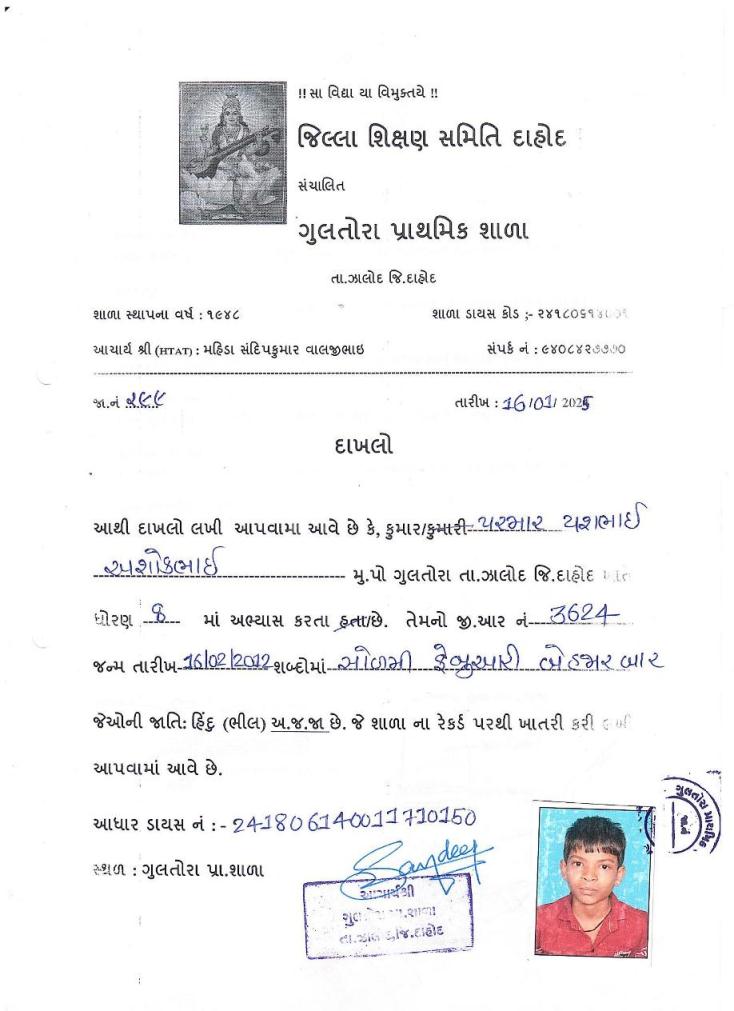 !! સા વિદ્યા યા વિમુક્તયે !!
જિલ્લા શિક્ષણ સમિતિ દાહોદ
સંચાલિત
ગુલતોરા પ્રાથમિક શાળા
તા.ઝાલોદ જિ.દાહોદ
શાળા સ્થાપના વર્ષ : ૧૯૪૮ શાળા ડાયસ કોડ ;-
આચાર્ય શ્રી (HTAT) : મહિડા સંદિપકુમાર વાલજીભાઇ સંપર્ક નં : ૯૪૦૮૪૨૭૭૭૦
જા.નં ૨૯૯ તારીખ : 16/01/ 2025
દાખલો
આથી દાખલો લખી આપવામા આવે છે કે, કુમાર/કુમારી પરમાર યશભાઈ
અશોકભાઈ મુ.પો ગુલતોરા તા.ઝાલોદ જિ.દાહોદ ખાતે
ધોરણ 8 માં અભ્યાસ કરતા હતા/છે. તેમનો જી.આર નં 3624
જન્મ તારીખ 16/02/2012 શબ્દોમાં સોળમી ફેબ્રુઆરી બેહજાર બાર
જેઓની જાતિ: હિંદુ (ભીલ) અ.જ.જા છે. જે શાળા ના રેકર્ડ પરથી ખાતરી કરી લખી
આપવામાં આવે છે.
આધાર ડાયસ નં : - 241806140011710150
સ્થળ : ગુલતોરા પ્રા.શાળા
Sandeep
આચાર્યશ્રી
ગુલતોરા પ્રા.શાળા
તા.ઝાલોદ જિ.દાહોદ
ગુલતોરા પ્રાથમિક